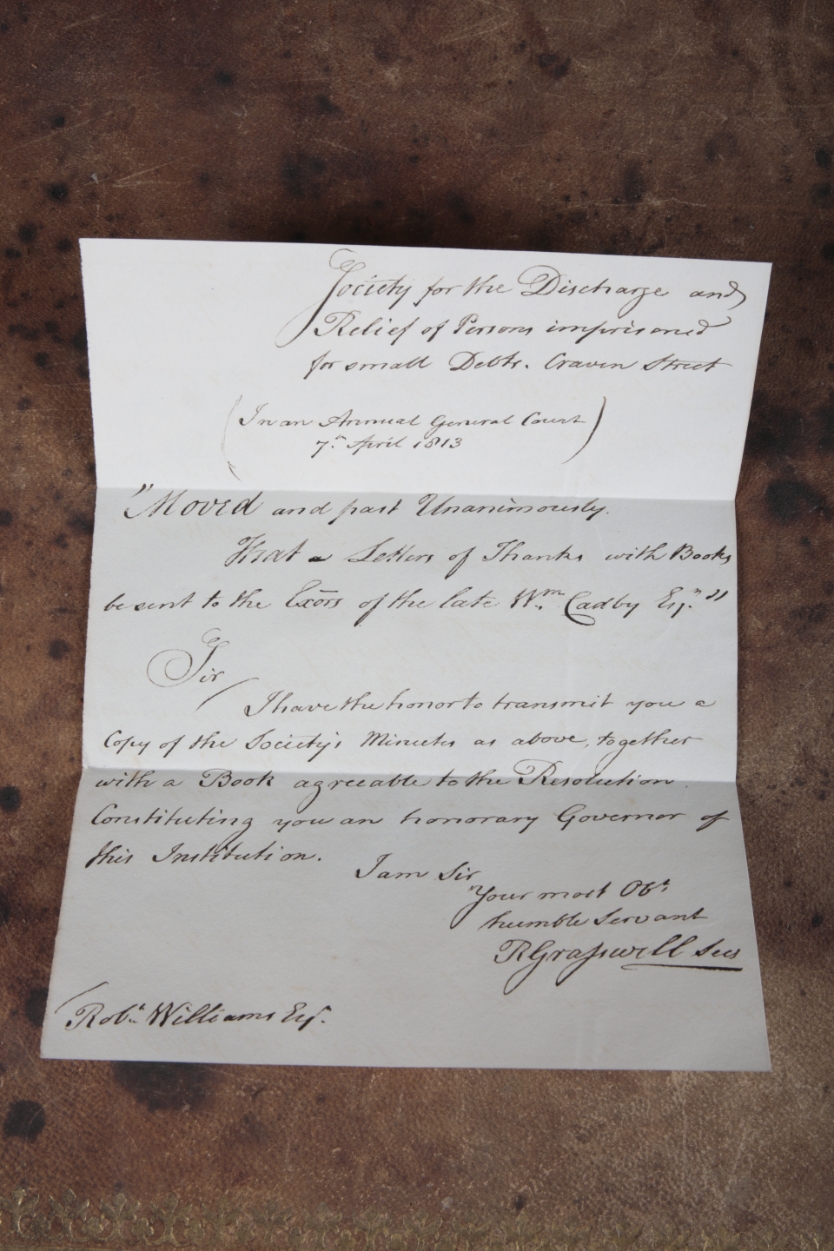 Society for the Discharge and
Relief of Persons imprisoned
for small Debts. Craven Street
(In an Annual General Court)
7th April 1813
"Moved and past Unanimously.
That a Letters of Thanks with Books
be sent to the Exors of the late Wm. Cadby Esqr."
Sir
I have the honor to transmit you a
Copy of the Society's Minutes as above, together
with a Book agreeable to the Resolution
Constituting you an honorary Governor of
this Institution.
I am Sir
Your most Obt.
humble Servant
Robt. Williams Esqr.